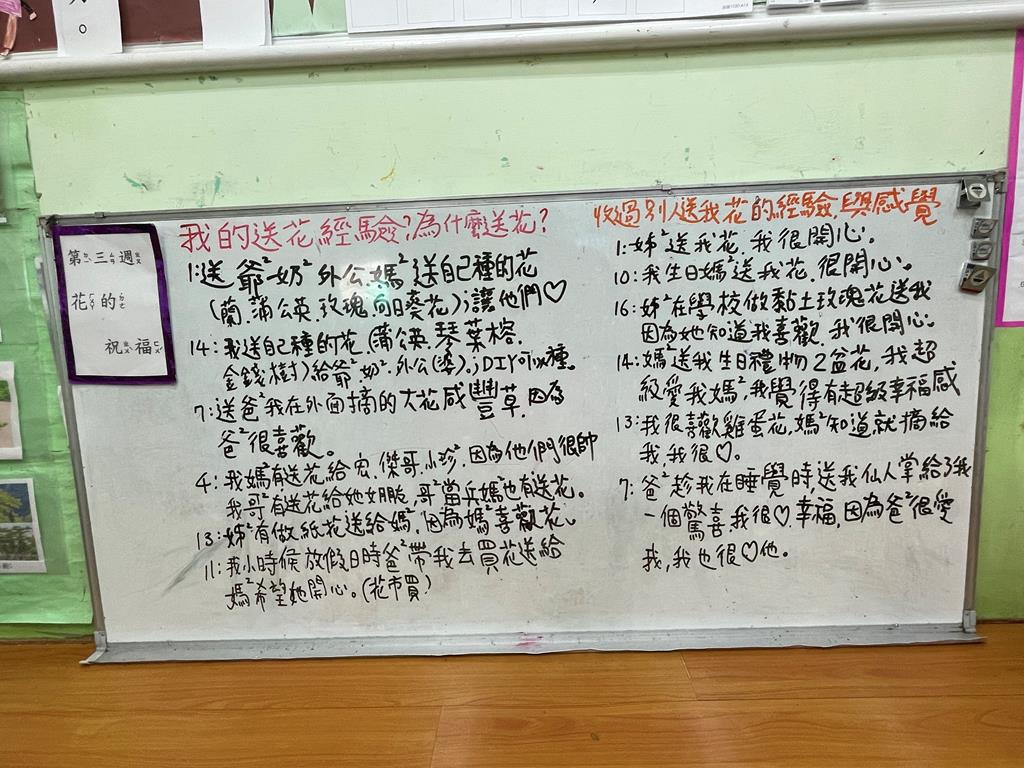 第三週
花的
祝福
我的送花經驗?為什麼送花?
1:送爺²奶²外公媽²送自己種的花
(蘭.蒲公英.玫瑰.向日葵花);讓他們♡
14:我送自己種的花.(蒲公英.琴葉榕.
金錢樹)給爺².奶².外公(婆);DIY可以種.
7:送爸²我在外面摘的大花咸豐草.因為
爸²很喜歡。
4:我媽有送花給宏.傑哥.小珍².因為他們很帥
我哥²有送花給她女朋友.哥²當兵媽²也有送花。
13:姊²有做紙花送給媽²,因為媽²喜歡花。
11:我小時候放假日時爸²帶我去買花送給
媽²希望她開心。(花市買)
收過別人送我花的經驗.與感覺
1:姊²送我花.我很開心。
10:我生日媽²送我花.很開心。
16:姊²在學校做黏土玫瑰花送我
因為她知道我喜歡.我很開心。
14:媽²送我生日禮物2盆花,我超
級愛我媽²,我覺得有超級幸福感
13:我很喜歡雞蛋花,媽²知道就摘給
我,我很♡。
7:爸²趁我在睡覺時送我仙人掌給了我
一個驚喜,我很♡.幸福,因為爸²很愛
我,我也很♡他。